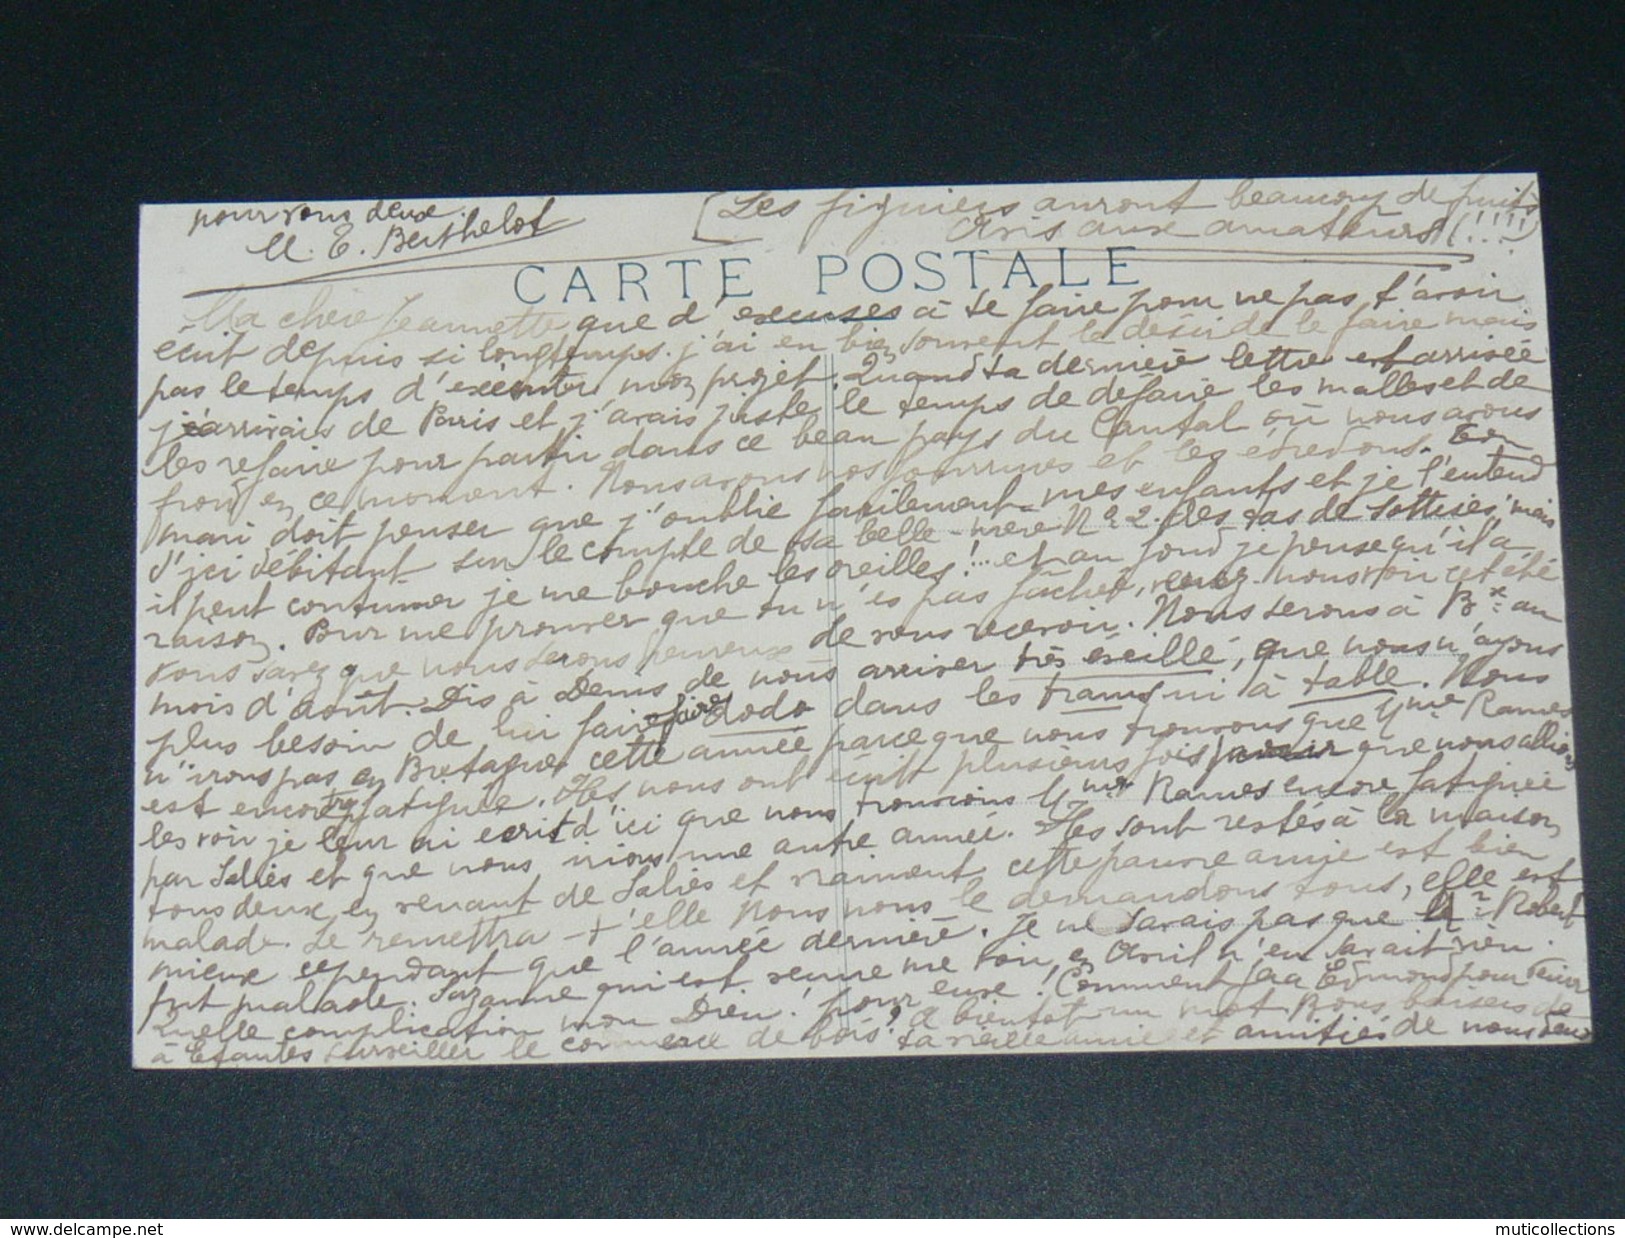 pour vous deux.
M. E. Berthelot
[Les figuiers auront beaucoup de fruits
Avis aux amateurs (!!!!)
CARTE POSTALE
Ma chère Jeannette que d'excuses à te faire pour ne pas t'avoir
écrit depuis si longtemps. j'ai eu bien souvent le désir de le faire mais
pas le temps d'exécuter mon projet. Quand ta dernière lettre est arrivée
j'arrivais de Paris et j'avais juste le temps de défaire les malles et de
les refaire pour partir dans ce beau pays du Cantal où nous avons
froid en ce moment. Nous avons nos fourrures et les édredons. Ton
mari doit penser que j'oublie facilement mes enfants et je l'entend
d'ici débitant sur le compte de sa belle-mère No 2. des tas de sottises, mais
il peut continuer je me bouche les oreilles!... et au fond je pense qu'il a
raison. Pour me prouver que tu n'es pas fâchée, venez nous voir cet été
vous savez que nous serons heureux de vous recevoir. Nous serons à Bx au
mois d'août. Dis à Denis de nous arriver très éveillé, que nous n'ayons
plus besoin de lui faire faire dodo dans les trams ni à table. Nous
n'irons pas en Bretagne cette année parce que nous trouvons que Mme Rames
est encore très fatiguée. Ils nous ont écrit plusieurs fois que nous allions
les voir je leur ai écrit d'ici que nous trouvions Mme Rames encore fatiguée
par Saliès et que nous irions une autre année. Ils sont restés à la maison
tous deux en revenant de Saliès et vraiment cette pauvre amie est bien
malade. Se remettra-t'elle nous nous le demandons tous, elle est
mieux cependant que l'année dernière. Je ne savais pas que Mr Robert
fut malade. Suzanne qui est venue me voir en Avril n'en savait rien.
Quelle complication mon Dieu! pour eux! Comment fera Edmond pour venir
à Etaules surveiller le commerce de bois? A bientôt un mot Bons baisers de
ta vieille amie et amitiés de nous deux
muticollections